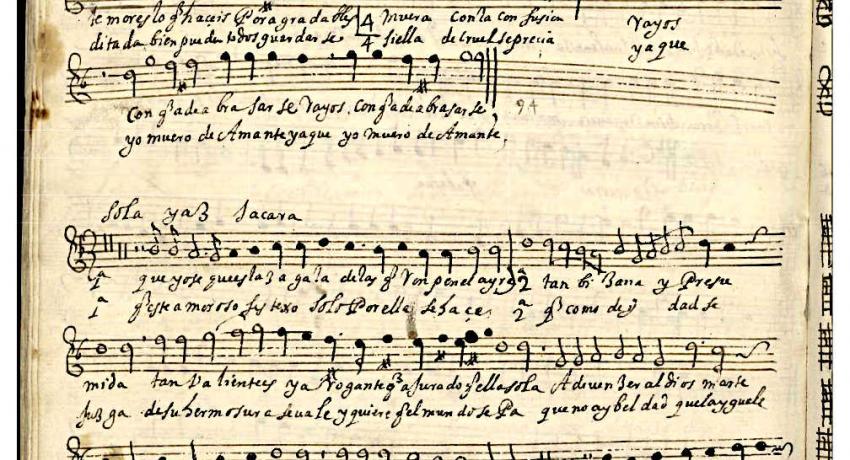 te mores lo q haceis Por a gradables 4 Muera Con la con fusion rayos
ditada bien pueden todos guardarse 4 siella de cruel se precia ya que
Con q a de a bra sar se rayos. Con q a de abrasar se
yo muero de Amante ya que yo muero de Amante,
94
Sola ya 3 Jacara
1ª que yo se que es la zagala de las q ron pen el ayre 2ª tan bi zana y Presu
1ª q este amoroso festexo solo Por ella se hace, 2ª q como dad se
mida tan Valiente y a rogante q a Jurado ella sola A de venzer al dios marte
Juzga de su hermosura se vale y quiere q el mundo se Pa que no ay bel dad que la yguele